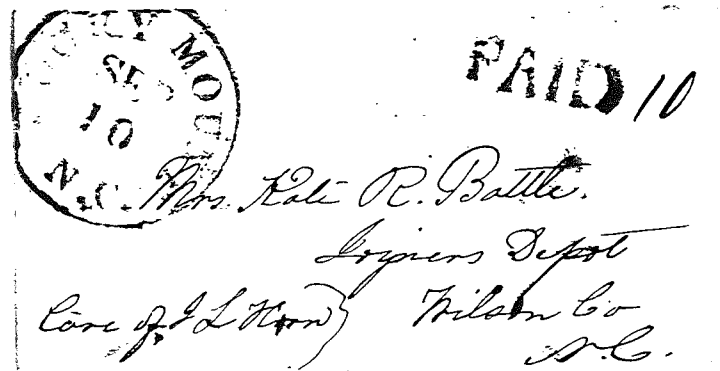 ROCKY MOUNT
SEP
10
N.C.
PAID 10
Mrs. Kate R. Battle.
Joyners Depot
Care of J L Horn } Wilson Co
N.C.